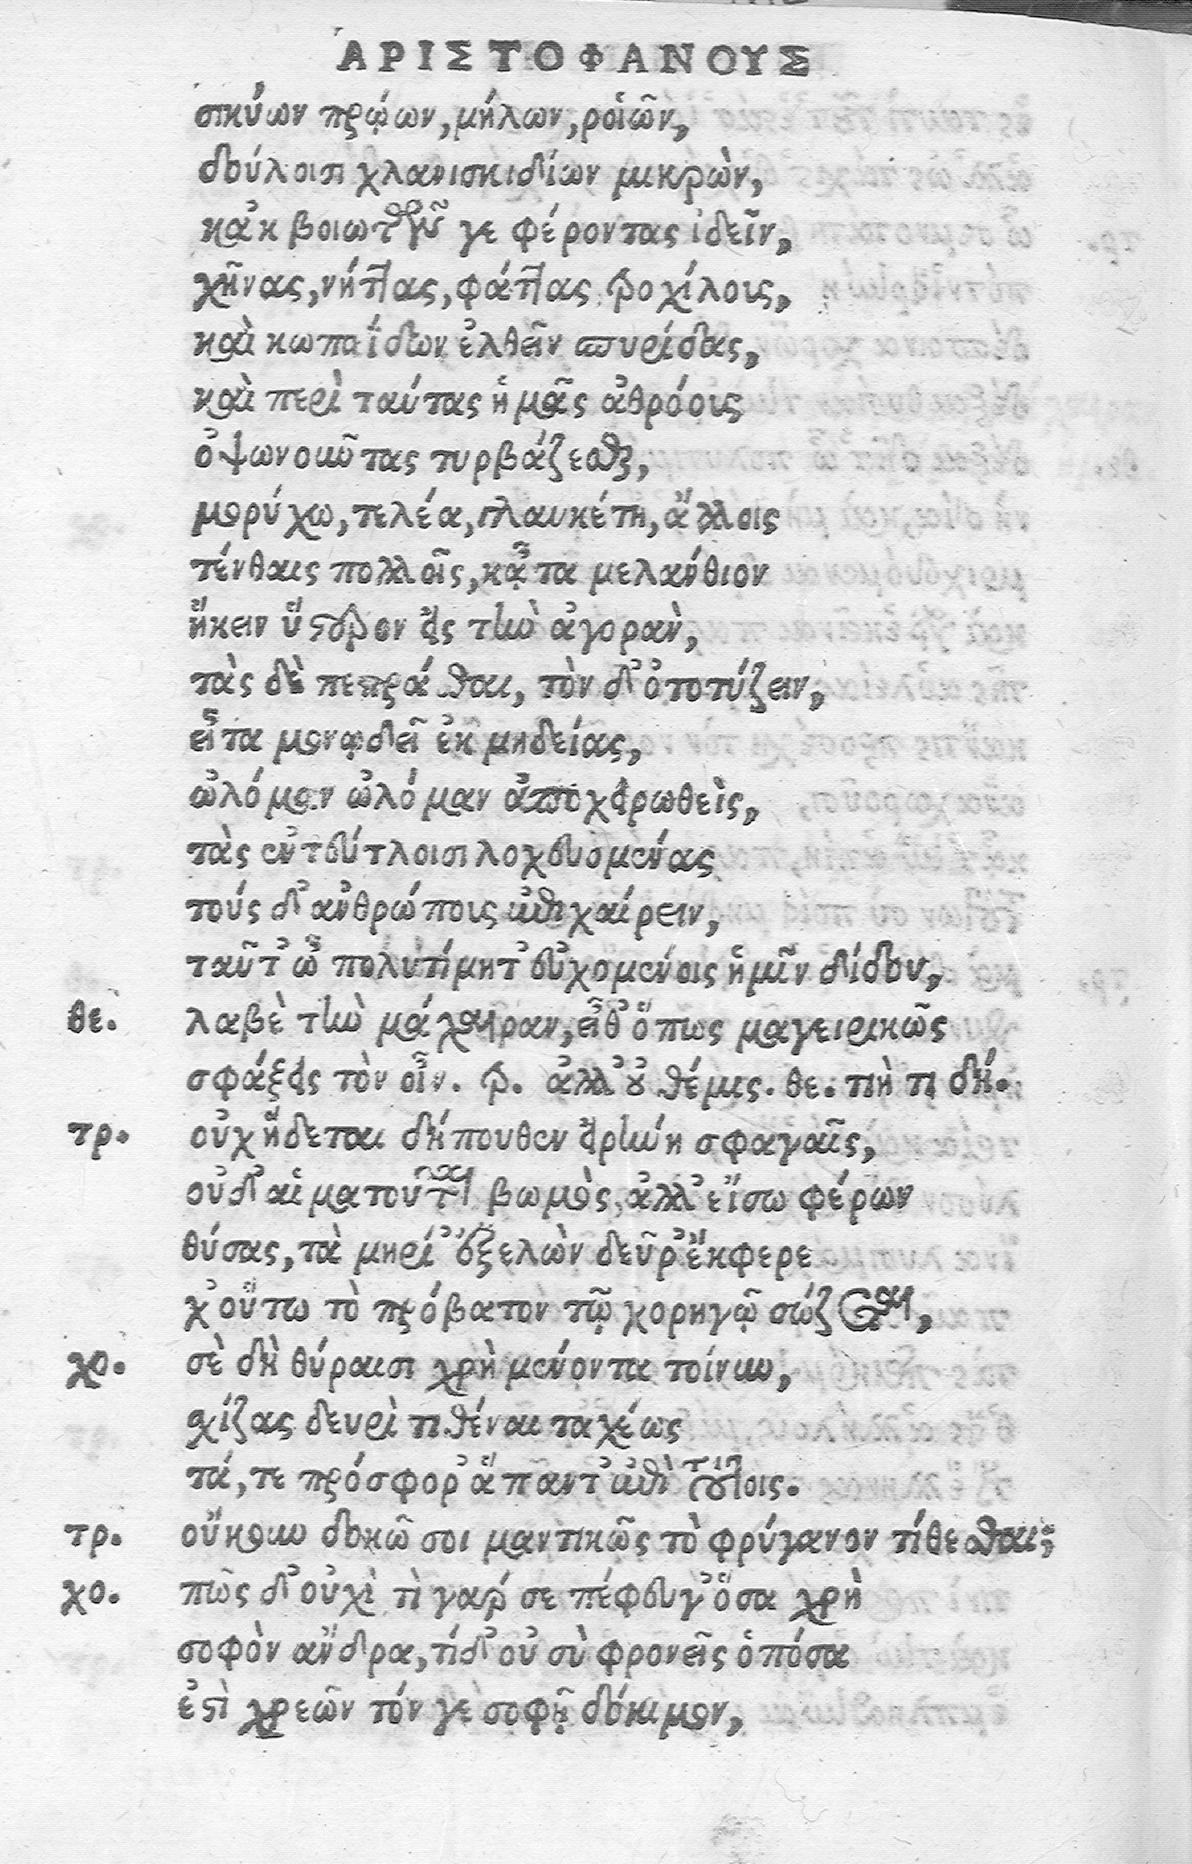 ἈΡΙΣΤΟΦΑΝΟΥΣ
σικύων πρῴων, μήλων, ῥοιῶν,
δούλοισι χλανισκιδίων μικρὼν,
κἀκ βοιωτῶν γε φέροντας ἰδεῖν,
χῆνας, νήττας, φάττας τροχίλους,
καὶ κωπαΐδων ἐλθεῖν σπυρίδας,
καὶ περὶ ταύτας ἡμᾶς ἀθρόους
ὀψωνοῦντας τυρβάζεσθαι,
μορύχω, τελέα, γλαυκέτῃ, ἄλλοις
τένθαις πολλοῖς, κᾆτα μελάνθιον
ἥκειν ὕστερον εἰς τὴν ἀγορὰν,
τὰς δὲ πεπράσθαι, τὸν δ' ὀτοτύζειν,
εἶτα μονῳδεῖ ἐκ μηδείας,
ὠλόμαν ὠλόμαν ἀποχειρωθεὶς,
τὰς ἐν τεύτλοισι λοχευομένας
τούς δ' ἀνθρώπους ἐπιχαίρειν,
ταῦτ' ὦ πολυτίμητ' εὐχομένοις ἡμῖν δίδου,
θε. λαβὲ τὴν μάχαιραν, εἶθ' ὅπως μαγειρικῶς
σφάξεις τὸν οἶν. τρ. ἀλλ' οὐ θέμις. θε. τιὴ τι δή.
τρ. οὐχ ἥδεται δήπουθεν εἰρήνη σφαγαῖς,
οὐδ' αἱματοῦται βωμὸς, ἀλλ' εἴσω φέρων
θύσας, τὰ μηρί' ἐξελὼν δεῦρ' ἔκφερε
χ' οὕτω τὸ πρόβατον τῷ χορηγῷ σώζεται,
χο. σὲ δὴ θύραισι χρὴ μένοντα τοίνυν,
σχίζας δευρὶ τιθέναι ταχέως
τά, τε πρόσφορ' ἅπαντ' ἐπὶ τούτοις.
τρ. οὔκουν δοκῶ σοι μαντικῶς τὸ φρύγανον τίθεσθαι;
χο. πῶς δ' οὐχὶ τὶ γαρ σε πέφευγ' ὅσα χρὴ
σοφὸν ἄνδρα, τί δ' οὐ σὺ φρονεῖς ὁπόσα
ἐστὶ χρεῶν τόν γε σοφῇ δόκιμον,